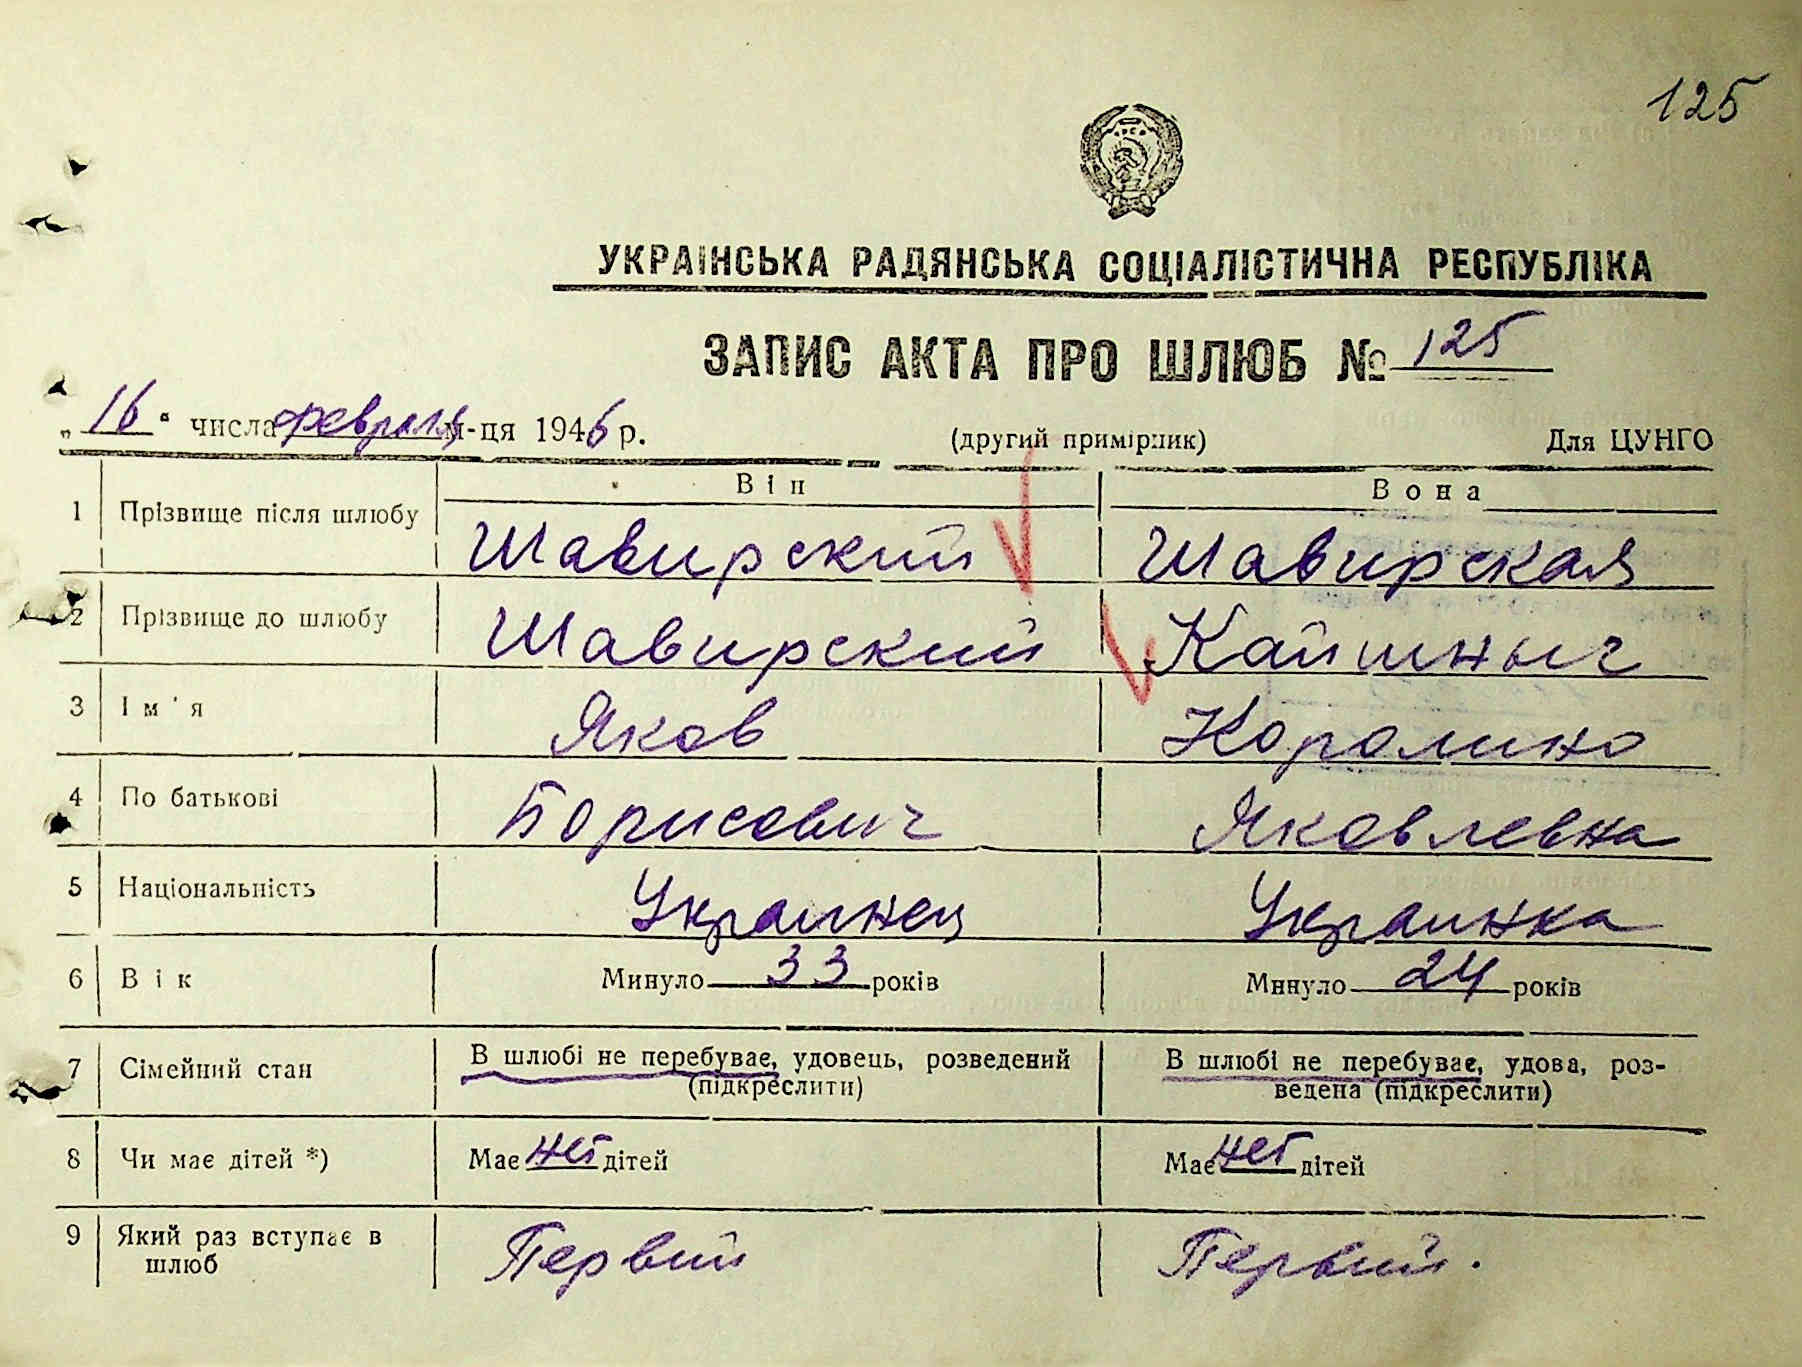 125
УКРАЇНСЬКА РАДЯНСЬКА СОЦІАЛІСТИЧНА РЕСПУБЛІКА
ЗАПИС АКТА ПРО ШЛЮБ № 125
„16“ числа февраля м-ця 1946 р. (другий примірник) Для ЦУНГО
Він Вона
1 Прізвище після шлюбу Шавирский Шавирская
2 Прізвище до шлюбу Шавирский Кайшныч
3 Ім'я Яков Каролина
4 По батькові Борисович Яковлевна
5 Національність Украинец Украинка
6 Вік Минуло 33 років Минуло 24 років
7 Сімейний стан В шлюбі не перебуває, удовець, розведений В шлюбі не перебуває, удова, роз-
(підкреслити) ведена (підкреслити)
8 Чи має дітей *) Має нет дітей Має нет дітей
9 Який раз вступає в Первий Первий.
шлюб